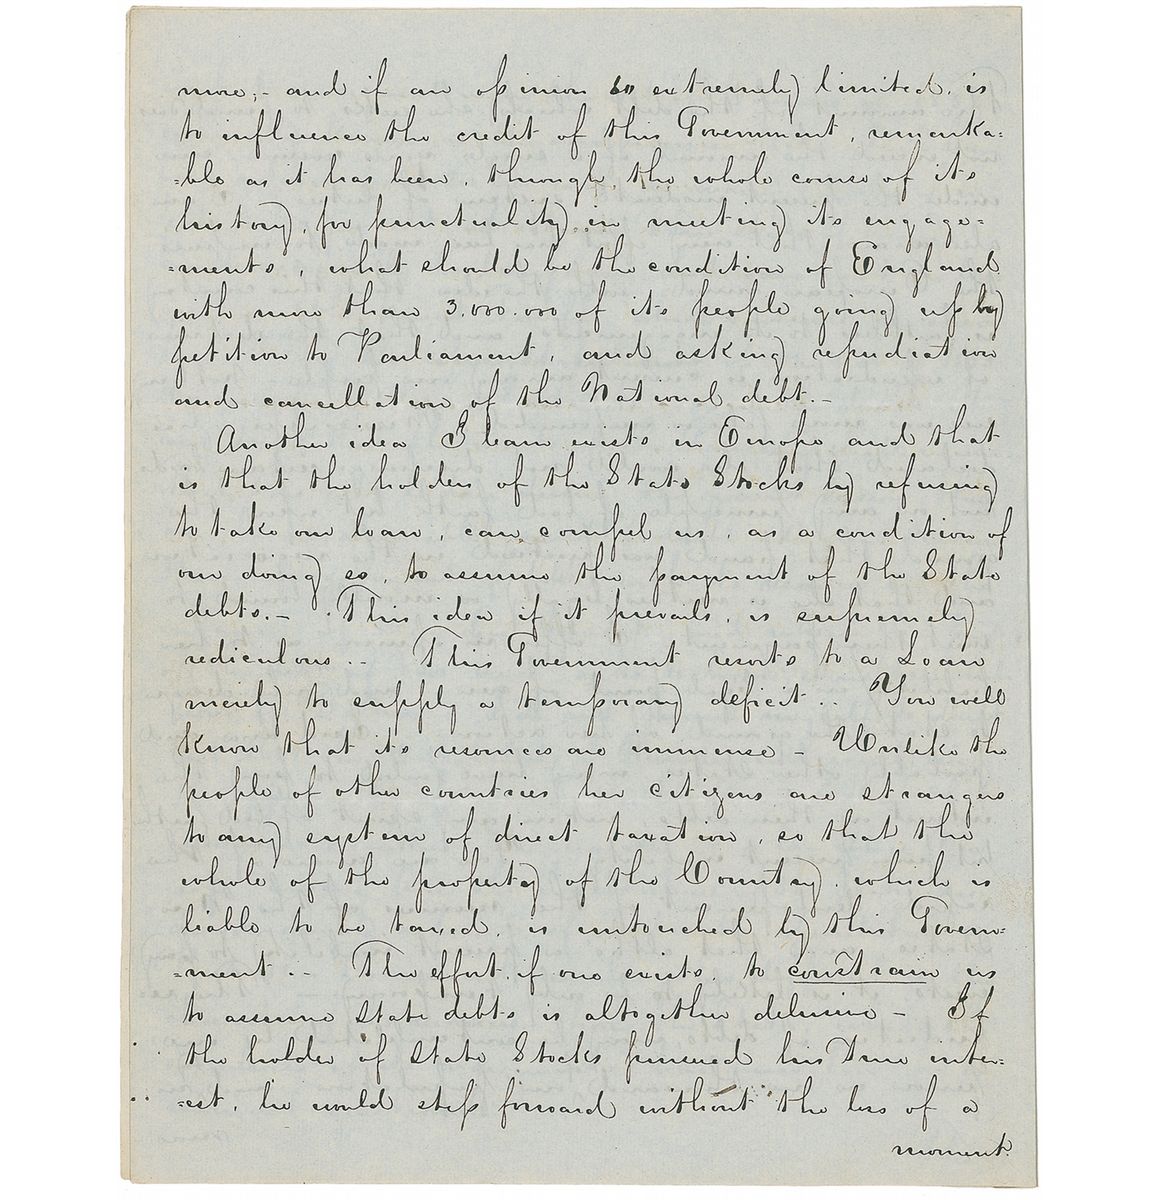 more;- and if an opinion so extremely limited, is
to influence the credit of this Government, remarka=
=ble as it has been, through, the whole course of its
history, for punctuality, in meeting its engage=
=ments, what should be the condition of England
with more than 3.000.000 of its people going up by
petition to Parliament, and asking repudiation
and cancellation of the National debt.-
Another idea I learn exists in Europe and that
is that the holders of the State Stocks by refusing
to take our loan, can compel us, as a condition of
our doing so, to assume the payment of the State
debts.- This idea if it prevails, is supremely
rediculous.- This Government resorts to a Loan
merely to supply a temporary deficit.. You well
know that its resources are immense - Unlike the
people of other countries her citizens are strangers
to any system of direct taxation, so that the
whole of the property of the Country, which is
liable to be taxed, is untouched by this Govern=
=ment.- The effort, if one exists, to constrain us
to assume State debts is altogether delusive - If
the holder of State Stocks pursued his true inter=
=est, he would step forward without the loss of a
moment.